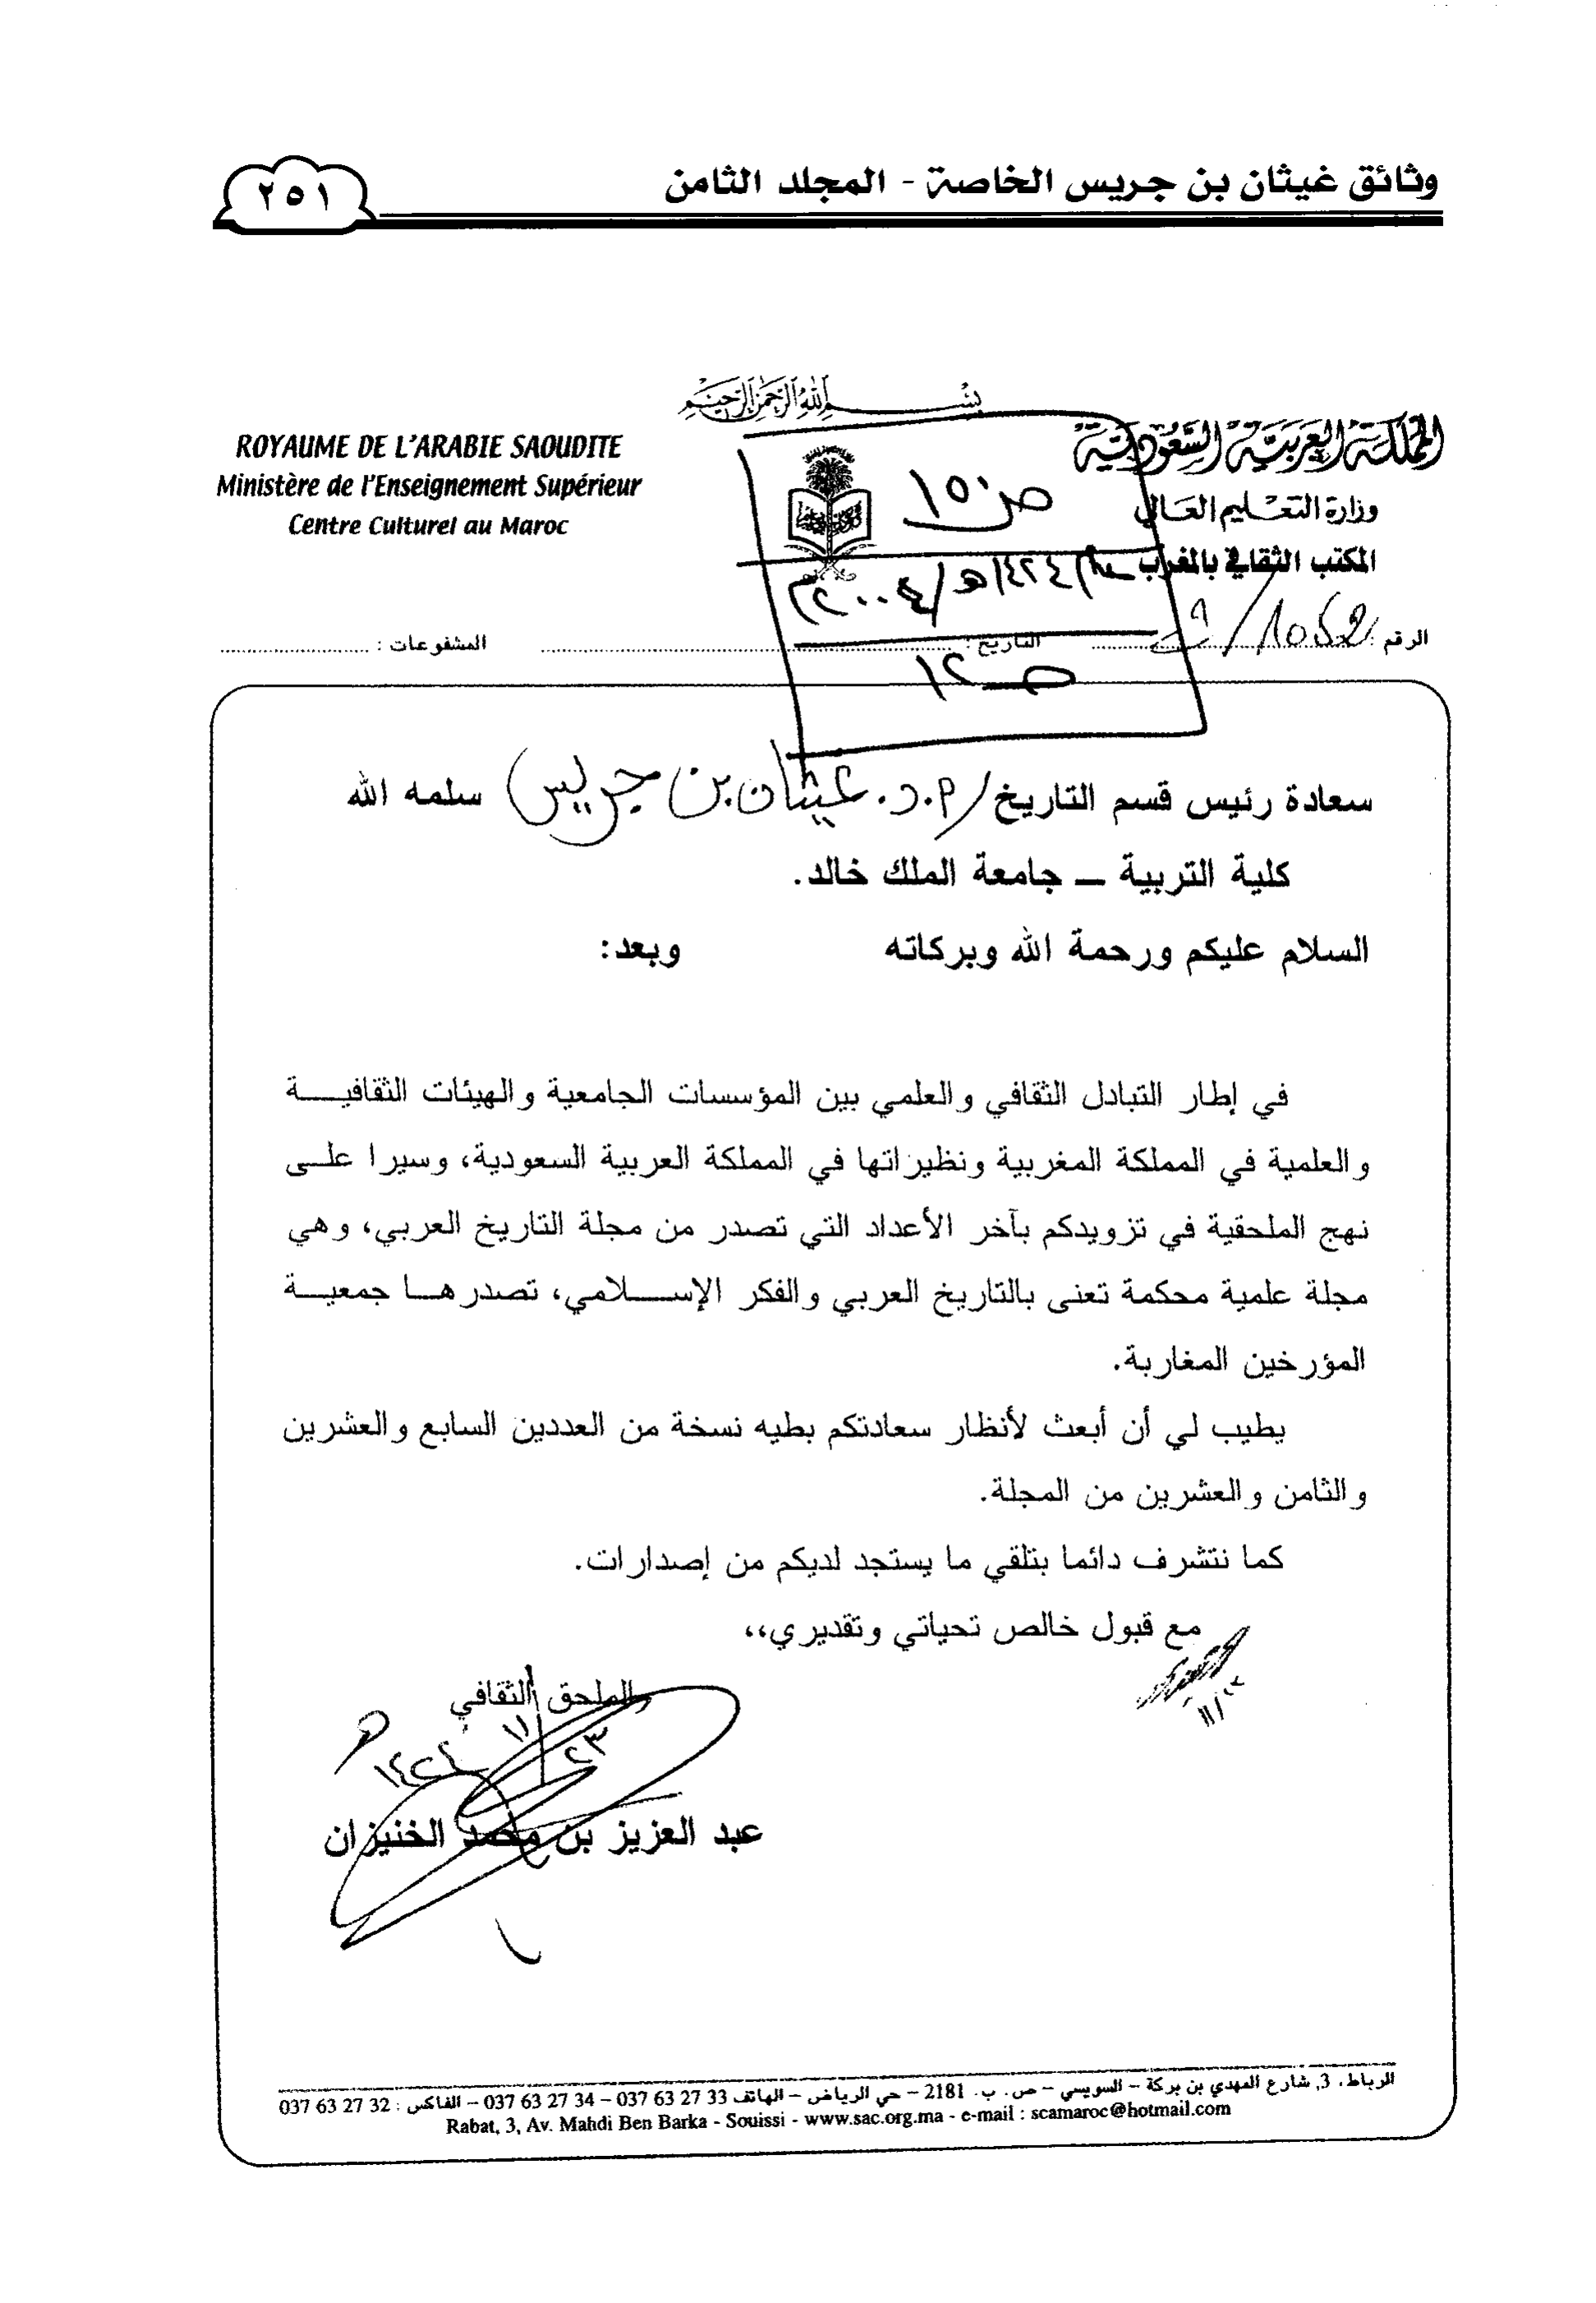 وثائق غيثان بن جريس الخاصة - المجلد الثامن
٢٥١
بسم الله الرحمن الرحيم
المملكة العربية السعودية
وزارة التعليم العالي
المكتب الثقافي بالمغرب
ROYAUME DE L'ARABIE SAOUDITE
Ministère de l'Enseignement Supérieur
Centre Culturel au Maroc
الرقم :
التاريخ :
المشفوعات :
سعادة رئيس قسم التاريخ / أ.د. غيثان بن جريس سلمه الله
كلية التربية – جامعة الملك خالد.
السلام عليكم ورحمة الله وبركاته وبعد:
في إطار التبادل الثقافي والعلمي بين المؤسسات الجامعية والهيئات الثقافية
والعلمية في المملكة المغربية ونظيراتها في المملكة العربية السعودية، وسيرا على
نهج الملحقية في تزويدكم بآخر الأعداد التي تصدر من مجلة التاريخ العربي، وهي
مجلة علمية محكمة تعنى بالتاريخ العربي والفكر الإسلامي، تصدرها جمعية
المؤرخين المغاربة.
يطيب لي أن أبعث لأنظار سعادتكم بطيه نسخة من العددين السابع والعشرين
والثامن والعشرين من المجلة.
كما نتشرف دائما بتلقي ما يستجد لديكم من إصدارات.
مع قبول خالص تحياتي وتقديري،،
الملحق الثقافي
عبد العزيز بن محمد الخنيزان
الرباط، 3, شارع المهدي بن بركة – السويسي – ص. ب. 2181 – حي الرياض – الهاتف 33 27 63 037 – 34 27 63 037 – الفاكس : 32 27 63 037
Rabat, 3, Av. Mahdi Ben Barka - Souissi - www.sac.org.ma - e-mail : scamaroc@hotmail.com